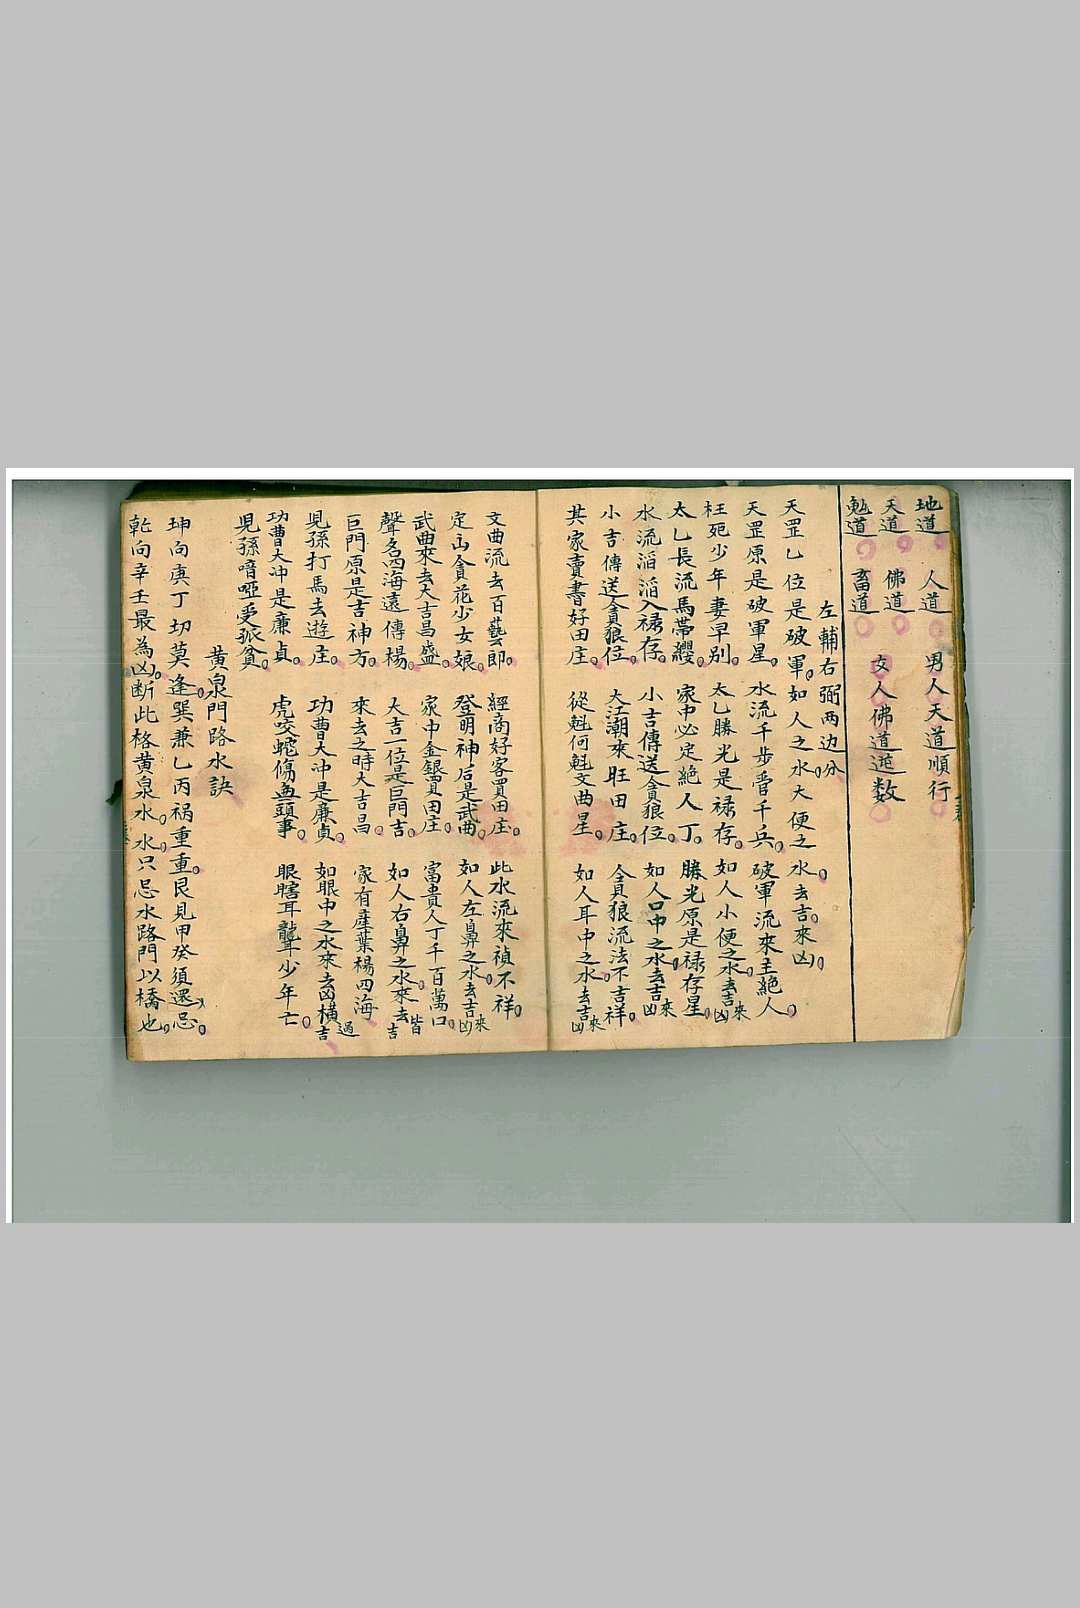 地道 人道 男人天道順行
天道 佛道 女人佛道逆数
鬼道 畜道
左輔右弼两边分
天罡乙位是破軍 如人之水大便之水去吉來凶
天罡原是破軍星 水流千步管千兵 破軍流來主絕人
枉死少年妻早别 太乚勝光是禄存 如人小便之水去吉來凶
太乚長流馬帶纓 家中必定絕人丁 勝光原是禄存星
水流滔滔入禄存 小吉傳送貪狼位 如人口中之水去吉來凶
小吉傳送貪狼位 大江潮來旺田庄 貪狼流法不吉祥
其家賣書好田庄 從魁何魁文曲星 如人耳中之水去吉來凶
文曲流去百藝郎 經商好客買田庄 此水流來禎不祥
定云貪花少女娘 登明神后是武曲 如人左鼻之水去吉來凶
武曲來去大吉昌盛 家中金銀買田庄 富貴人丁千百萬口
聲名四海遠傳楊 大吉一位是巨門吉 如人右鼻之水來去皆吉
巨門原是吉神方 來去之時大吉昌 家有産業楊四海
児孫打馬去遊庄 功曹大冲是廉貞 如眼中之水來去凶横過吉
功曹大冲是廉貞 虎咬蛇傷血頭事 眼瞎耳聾少年亡
児孫喑啞受孤貧
黄泉門路水訣
坤向庚丁切莫逢 巽兼乙丙禍重重 艮見甲癸須還忌
乾向辛壬最為凶 断此格黄泉水 水只忌水路門以橋也